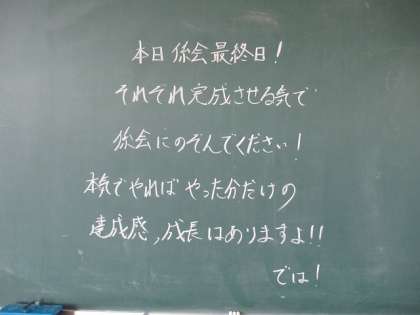 本日係会最終日!
それぞれ完成させる気で
係会にのぞんでください!
本気でやれば やった分だけの
達成感,成長はありますよ!!
では!